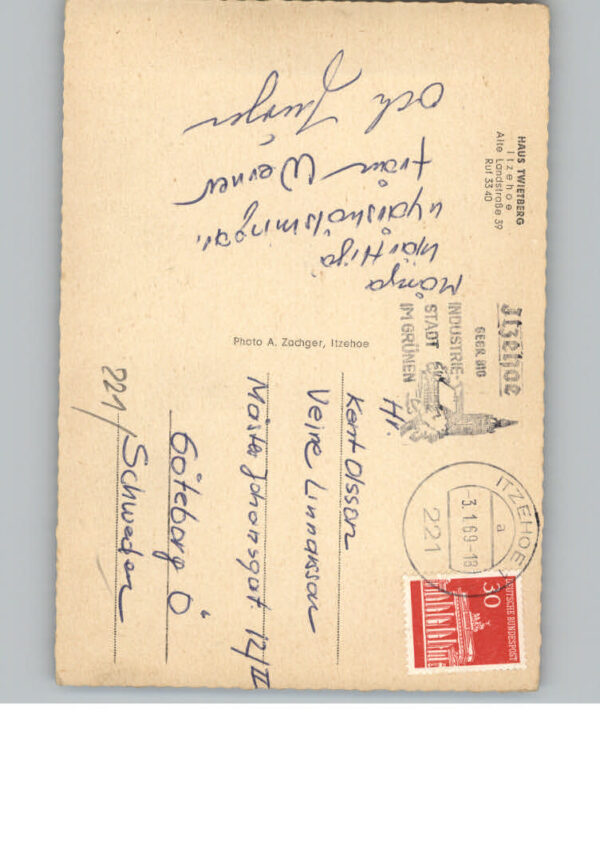 HAUS TWIETBERG
Itzehoe
Alte Landstraße 39
Ruf 33 40
Många
hjärtliga
nyårshälsningar,
från Werner
och Jürgen
Photo A. Zachger, Itzehoe
Itzehoe
INDUSTRIE-
STADT
IM GRÜNEN
ITZEHOE
a
-3.1.69-18
221
DEUTSCHE BUNDESPOST
30
Hr.
Kent Olsson
Mäster Johansgat 12/II
Göteborg Ö
221/Schweden